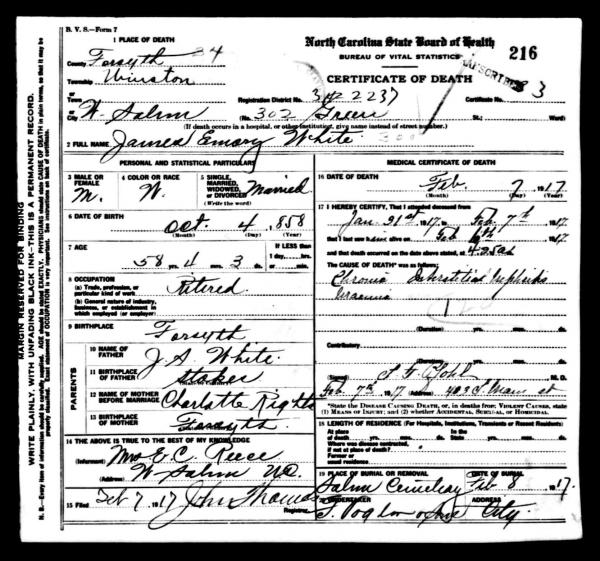 B. V. S.—Form 7
1 PLACE OF DEATH
County Forsyth 34
Township Winston
or
Town
or
City W. Salem
North Carolina State Board of Health
BUREAU OF VITAL STATISTICS
216
CERTIFICATE OF DEATH
Registration District No. 342 2237 Certificate No. 3
(No. 302 Green St.; Ward)
(If death occurs in a hospital, or other institution, give name instead of street number.)
2 FULL NAME James Emory White
PERSONAL AND STATISTICAL PARTICULARS
3 MALE OR FEMALE M.
4 COLOR OR RACE W.
5 SINGLE, MARRIED, WIDOWED, or DIVORCED Married
(Write the word)
6 DATE OF BIRTH
Oct. 4, 1858
(Month) (Day) (Year)
7 AGE
58 yrs. 4 mos. 3 ds.
If LESS than
1 day, hrs.
or min.
8 OCCUPATION
(a) Trade, profession, or
particular kind of work Retired
(b) General nature of industry,
business, or establishment in
which employed (or employer)
9 BIRTHPLACE Forsyth
PARENTS
10 NAME OF FATHER J. A. White
11 BIRTHPLACE OF FATHER Stokes
12 NAME OF MOTHER BEFORE MARRIAGE Charlotte Rights
13 BIRTHPLACE OF MOTHER Forsyth
14 THE ABOVE IS TRUE TO THE BEST OF MY KNOWLEDGE
(Informant) Mrs E. C. Reece
(Address) W Salem NC.
15 Filed Feb 7, 1917 John Thomas
Registrar
MEDICAL CERTIFICATE OF DEATH
16 DATE OF DEATH
Feb 7 1917
(Month) (Day) (Year)
17 I HEREBY CERTIFY, That I attended deceased from
Jan. 31st 1917, to Feb. 7th 1917.
that I last saw him alive on Feb 6th 1917
and that death occurred on the date above stated, at
The CAUSE OF DEATH* was as follows:
Chronic Interstitial Nephritis
Uraemia
(Duration) yrs. mos. ds.
Contributory
(Duration) yrs. mos. ds.
(Signed) M. D.
Feb 7th, 1917 (Address) S. Main st
*State the DISEASE CAUSING DEATH, or, in deaths from VIOLENT CAUSES, state
(1) MEANS OF INJURY; and (2) whether ACCIDENTAL, SUICIDAL, or HOMICIDAL.
18 LENGTH OF RESIDENCE (For Hospitals, Institutions, Transients or Recent Residents)
At place of death yrs. mos. ds. In the State yrs. mos. ds.
Where was disease contracted,
if not at place of death?
Former or
usual residence
19 PLACE OF BURIAL OR REMOVAL
Salem Cemetery
DATE OF BURIAL
Feb 8 1917.
20 UNDERTAKER
ADDRESS
City
MARGIN RESERVED FOR BINDING
WRITE PLAINLY, WITH UNFADING BLACK INK—THIS IS A PERMANENT RECORD.
N. B.—Every item of information should be carefully supplied. AGE should be stated EXACTLY. PHYSICIANS should state CAUSE OF DEATH in plain terms, so that it may be
properly classified. Exact statement of OCCUPATION is very important. See instructions on back of certificate.